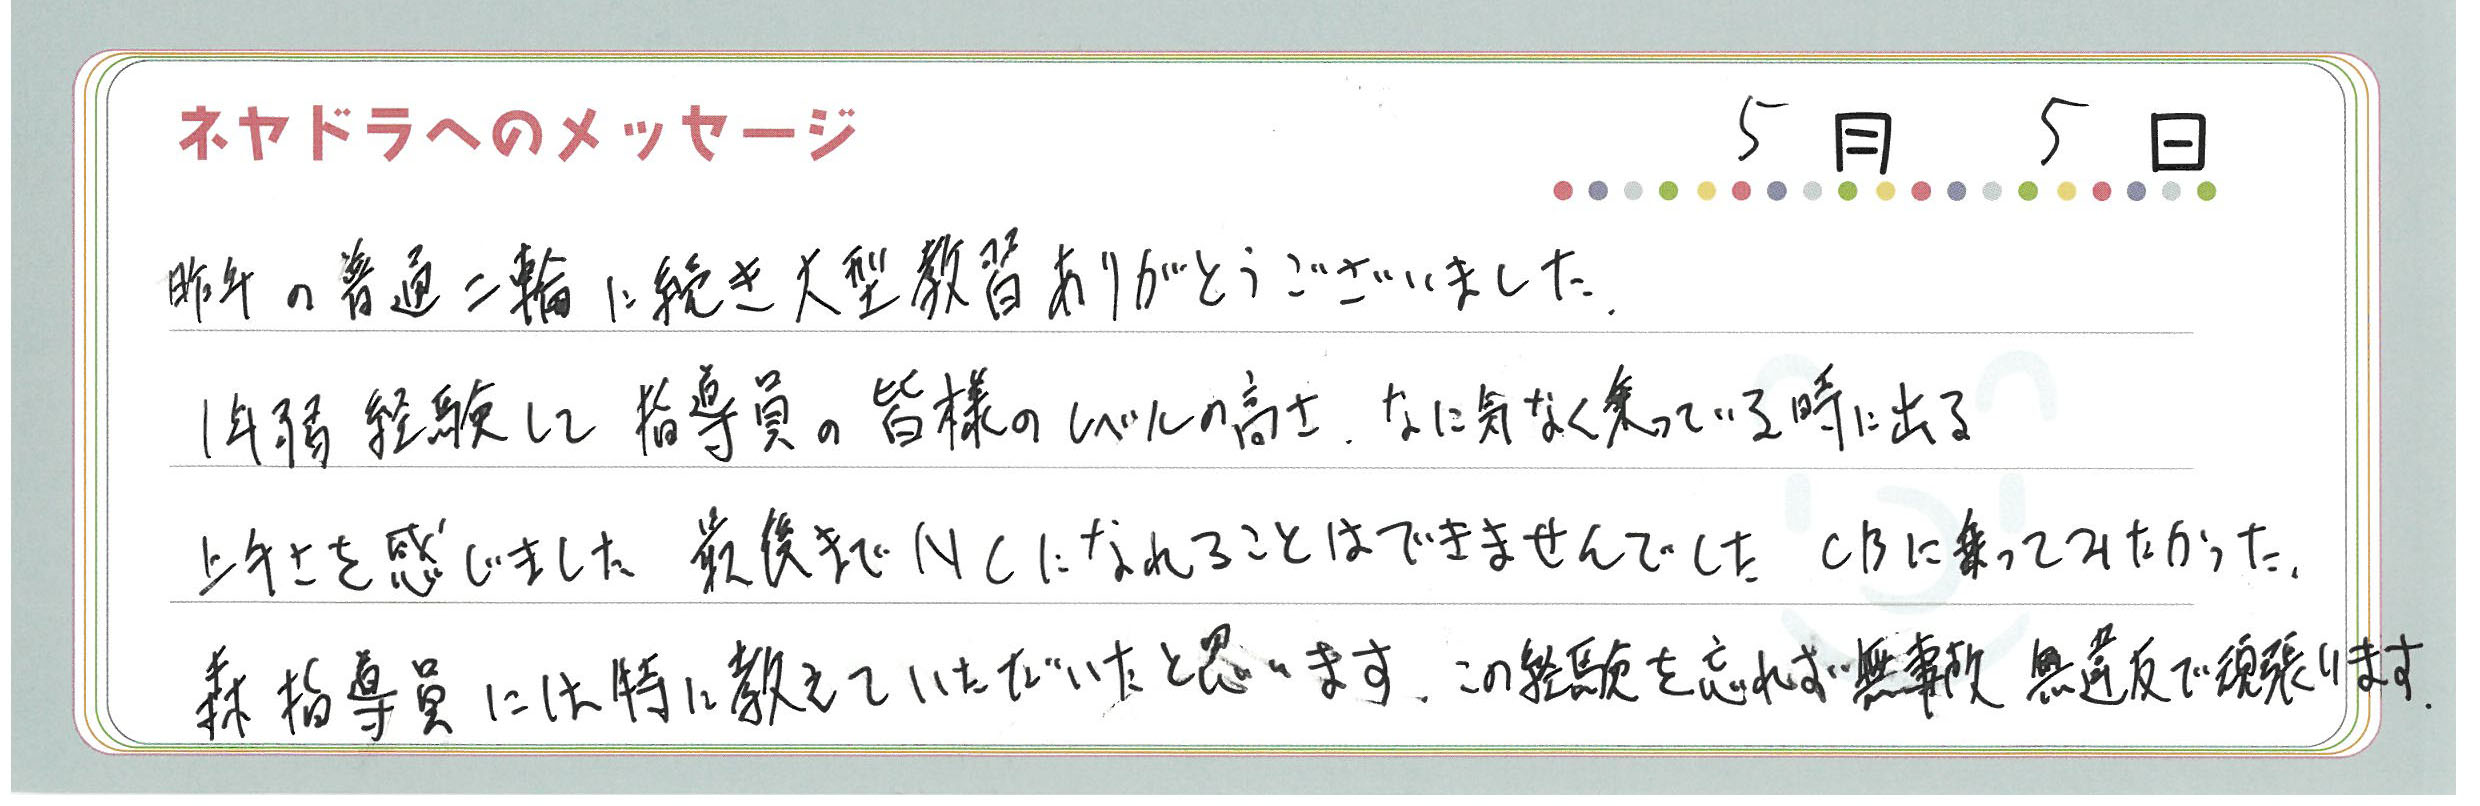 ネヤドラへのメッセージ
5月 5日
昨年の普通二輪に続き大型教習ありがとうございました.
1年弱 経験して 指導員の 皆様のレベルの高さ. なに気なく乗っている時に出る
上手さを感じました 最後までNCになれることはできませんでした CBに乗ってみたかった.
森指導員には特に教えていただいたと思います. この経験を忘れず無事故 無違反で頑張ります.